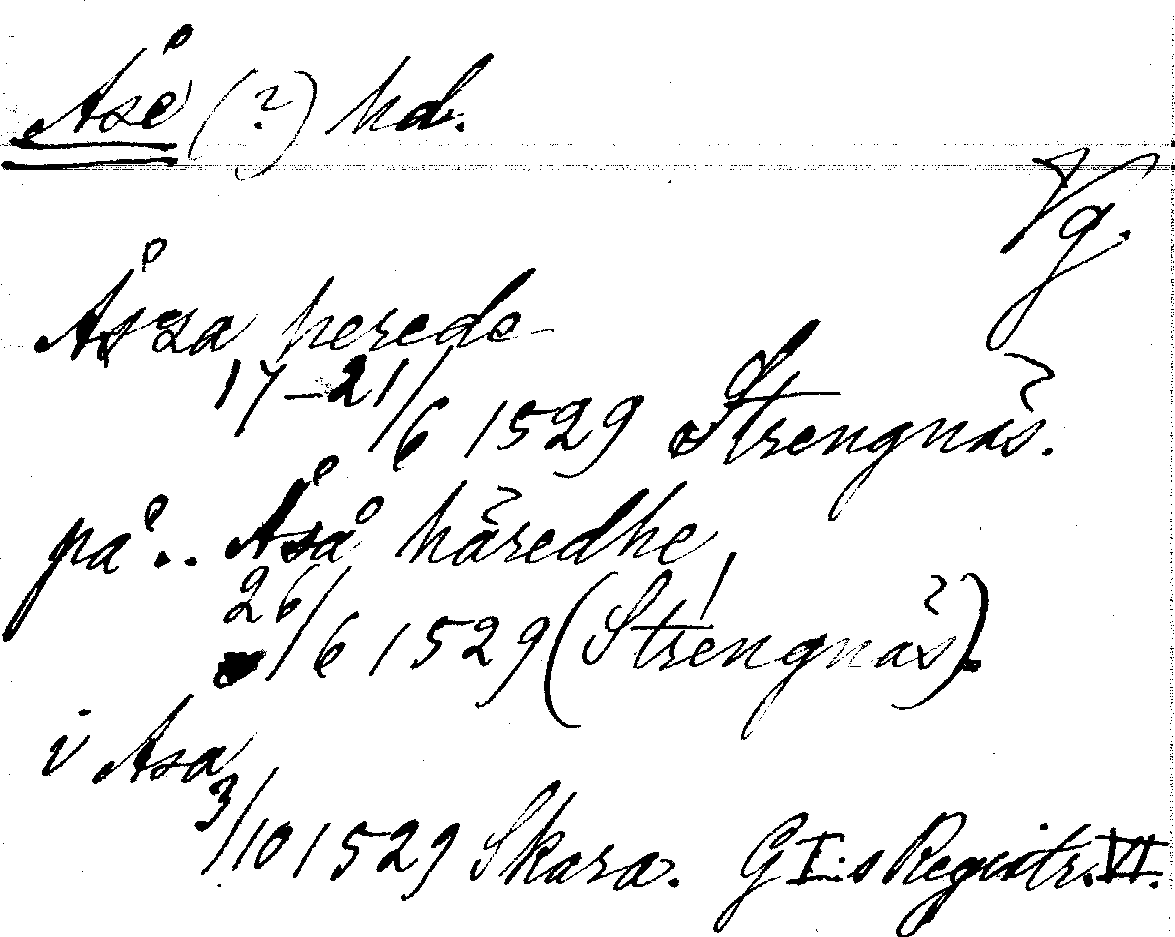 Åse (?) hd.
Vg.
Åssa herede
17–21/6 1529 Strengnäs.
på .. Åså häredhe
26/6 1529 (Strengnäs).
i Asa
3/10 1529 Skara. G I:s Registr. VI.